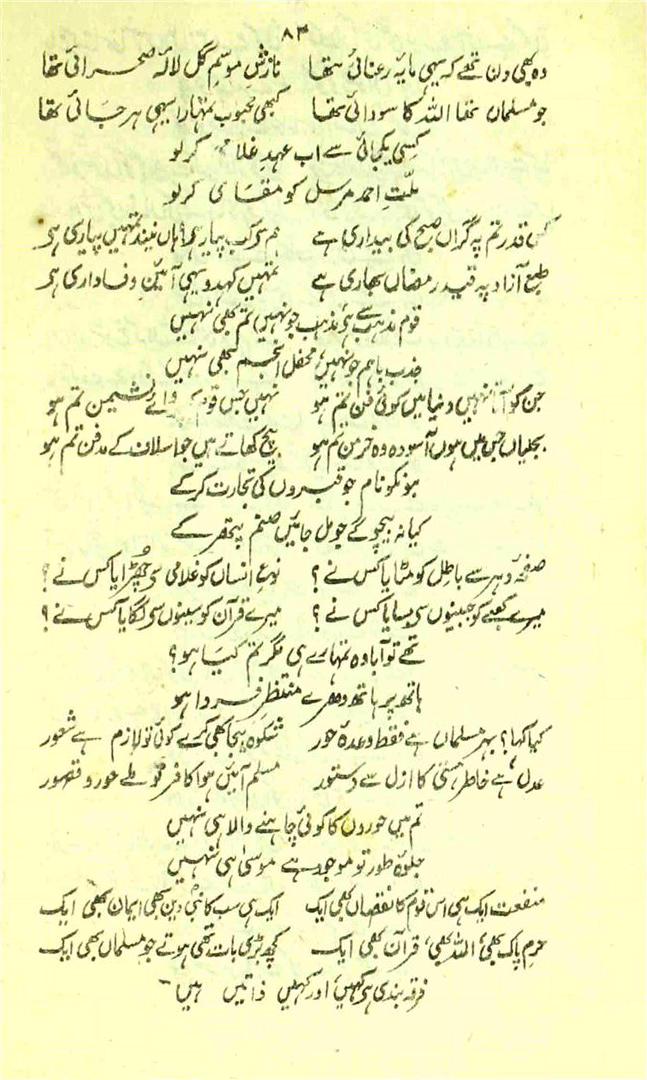 ۸۳
وہ بھی دن تھے کہ یہی مایۂ رعنائی تھا نازشِ موسمِ گل لالۂ صحرائی تھا
جو مسلماں تھا اللہ کا سودائی تھا کبھی محبوب تمہارا یہی ہرجائی تھا
کسی یکجائی سے اب عہدِ غلامی کرلو
ملّتِ احمد مرسل کو مقامی کرلو
کس قدر تم پہ گراں صبح کی بیداری ہے ہم سے کب پیار ہے! ہاں نیند تمہیں پیاری ہے
طبع آزاد پہ قید رمضاں بھاری ہے تمہیں کہدو یہی آئینِ وفاداری ہے
قوم مذہب سے ہے، مذہب جو نہیں، تم بھی نہیں
جذب باہم جو نہیں، محفل انجم بھی نہیں
جن کو آتا نہیں دنیا میں کوئی فن تم ہو نہیں جس قوم کو پروائے نشیمن تم ہو
بجلیاں جس میں ہوں آسودہ وہ خرمن تم ہو بیچ کھاتے ہیں جو اسلاف کے مدفن تم ہو
ہو نکو نام جو قبروں کی تجارت کرکے
کیا نہ بیچوگے جو مل جائیں صنم پتھر کے
صفحۂ دہر سے باطل کو مٹایا کس نے؟ نوعِ انساں کو غلامی سے چھڑایا کس نے؟
میرے کعبے کو جبینوں سے بسایا کس نے؟ میرے قرآن کو سینوں سے لگایا کس نے؟
تھے تو آبا وہ تمہارے ہی مگر تم کیا ہو؟
ہاتھ پر ہاتھ دھرے منتظرِ فردا ہو
کیا کہا؟ بہر مسلماں ہے فقط وعدۂ حور شکوہ بیجا بھی کرے کوئی تو لازم ہے شعور
عدل ہے خاطر ہستی کا ازل سے دستور مسلم آئیں ہوا کافر تو ملے حور و قصور
تم میں حوروں کا کوئی چاہنے والا ہی نہیں
جلوۂ طور تو موجود ہے موسیٰ ہی نہیں
منفعت ایک ہی اس قوم کا نقصاں بھی ایک ایک ہی سب کا نبیؐ دین بھی ایمان بھی ایک
حرم پاک بھی، اللہ بھی، قرآن بھی ایک کچھ بڑی بات تھی ہوتے جو مسلماں بھی ایک
فرقہ بندی ہے کہیں، اور کہیں ذاتیں ہیں